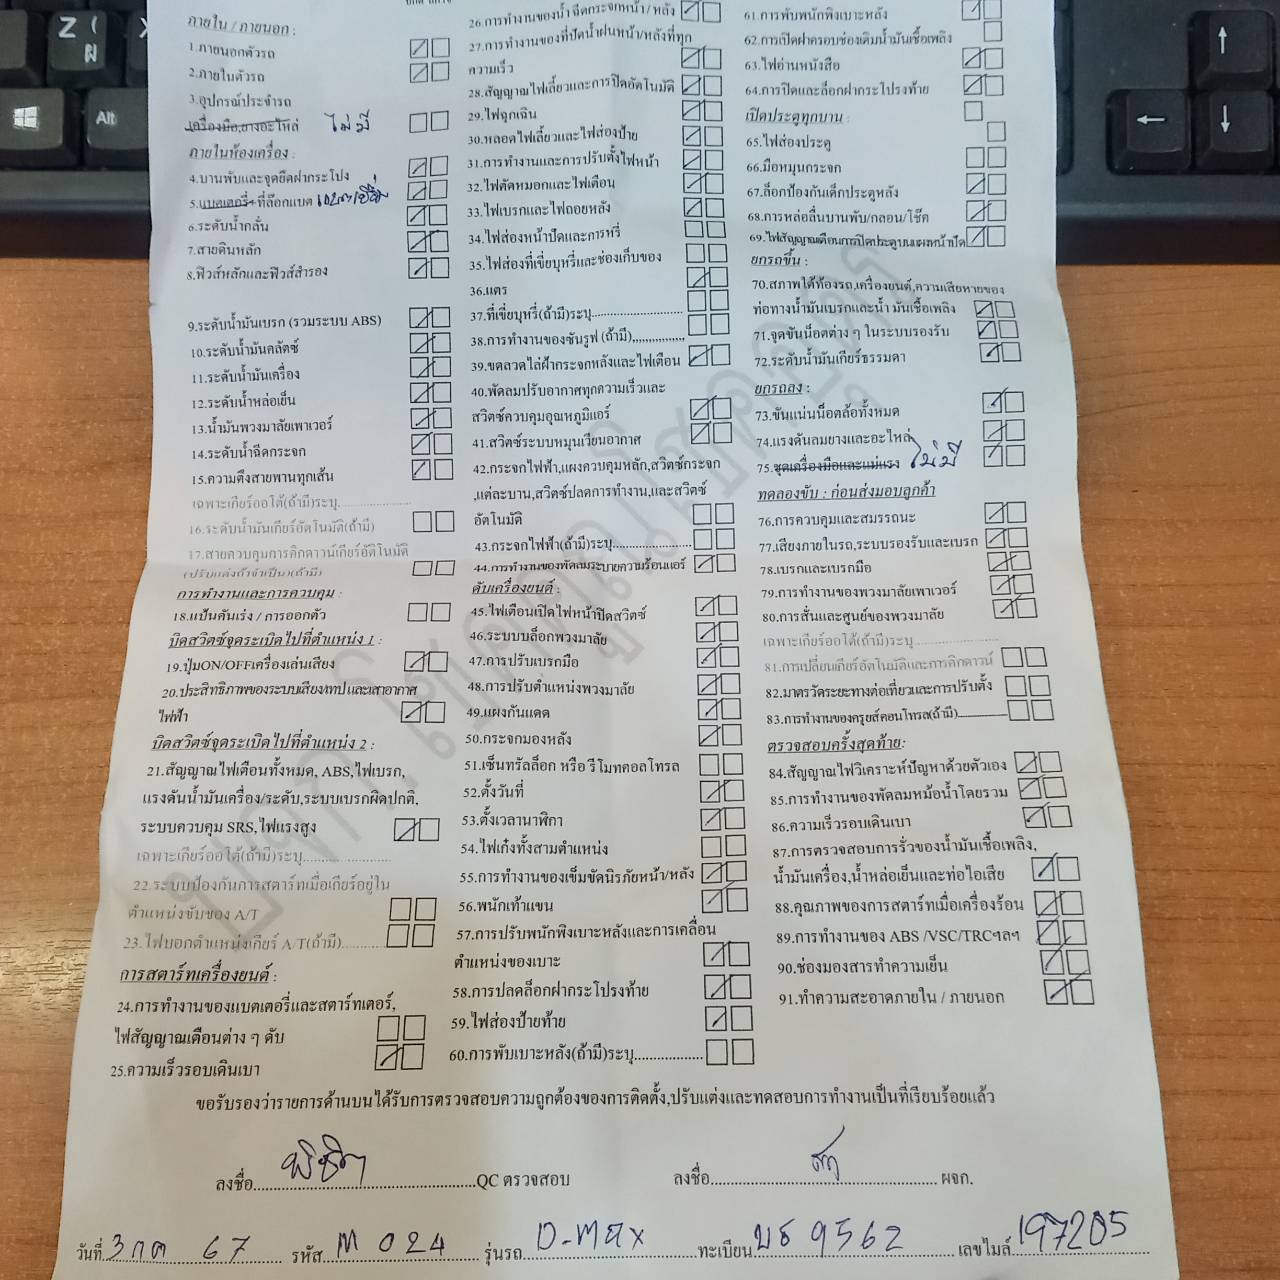 ภายใน / ภายนอก :
1.ภายนอกตัวรถ
2.ภายในตัวรถ
3.อุปกรณ์ประจำรถ
เครื่องมือ,ยางอะไหล่ ไม่มี
ภายในห้องเครื่อง :
4.บานพับและจุดยึดฝากระโปง
5.แบตเตอรี่+ที่ล๊อกแบต
6.ระดับน้ำกลั่น
7.สายดินหลัก
8.ฟิวส์หลักและฟิวส์สำรอง
9.ระดับน้ำมันเบรก (รวมระบบ ABS)
10.ระดับน้ำมันคลัตช์
11.ระดับน้ำมันเครื่อง
12.ระดับน้ำหล่อเย็น
13.น้ำมันพวงมาลัยเพาเวอร์
14.ระดับน้ำฉีดกระจก
15.ความตึงสายพานทุกเส้น
เฉพาะเกียร์ออโต้(ถ้ามี)ระบุ
16.ระดับน้ำมันเกียร์อัตโนมัติ(ถ้ามี)
17.สายควบคุมการคิกดาวน์เกียร์อัตโนมัติ
(ปรับแต่งถ้าจำเป็น)(ถ้ามี)
การทำงานและการควบคุม :
18.แป้นคันเร่ง / การออกตัว
บิดสวิตซ์จุดระเบิดไปที่ตำแหน่ง 1 :
19.ปุ่มON/OFFเครื่องเล่นเสียง
20.ประสิทธิภาพของระบบเสียง/เทป และเสาอากาศ
ไฟฟ้า
บิดสวิตซ์จุดระเบิดไปที่ตำแหน่ง 2 :
21.สัญญาณไฟเตือนทั้งหมด, ABS,ไฟเบรก,
แรงดันน้ำมันเครื่อง/ระดับ,ระบบเบรกผิดปกติ,
ระบบควบคุม SRS,ไฟแรงสูง
เฉพาะเกียร์ออโต้(ถ้ามี)ระบุ
22.ระบบป้องกันการสตาร์ทเมื่อเกียร์อยู่ใน
ตำแหน่งขับของ A/T
23.ไฟบอกตำแหน่งเกียร์ A/T(ถ้ามี)
การสตาร์ทเครื่องยนต์ :
24.การทำงานของแบตเตอรี่และสตาร์ทเตอร์,
ไฟสัญญาณเตือนต่าง ๆ ดับ
25.ความเร็วรอบเดินเบา
26.การทำงานของน้ำ ฉีดกระจกหน้า/หลัง
27.การทำงานของที่ปัดน้ำฝนหน้า/หลังที่ทุก
ความเร็ว
28.สัญญาณไฟเลี้ยวและการปิดอัตโนมัติ
29.ไฟฉุกเฉิน
30.หลอดไฟเลี้ยวและไฟส่องป้าย
31.การทำงานและการปรับตั้งไฟหน้า
32.ไฟตัดหมอกและไฟเตือน
33.ไฟเบรกและไฟถอยหลัง
34.ไฟส่องหน้าปัดและการหรี่
35.ไฟส่องที่เขี่ยบุหรี่และช่องเก็บของ
36.แตร
37.ที่เขี่ยบุหรี่(ถ้ามี)ระบุ
38.การทำงานของซันรูฟ (ถ้ามี)
39.ขดลวดไล่ฝ้ากระจกหลังและไฟเตือน
40.พัดลมปรับอากาศทุกความเร็วและ
สวิตซ์ควบคุมอุณหภูมิแอร์
41.สวิตซ์ระบบหมุนเวียนอากาศ
42.กระจกไฟฟ้า,แผงควบคุมหลัก,สวิตซ์กระจก
,แต่ละบาน,สวิตซ์ปลดการทำงาน,และสวิตซ์
อัตโนมัติ
43.กระจกไฟฟ้า(ถ้ามี)ระบุ
44.การทำงานของพัดลมระบายความร้อนแอร์
ดับเครื่องยนต์ :
45.ไฟเตือนเปิดไฟหน้าปิดสวิตซ์
46.ระบบบล็อกพวงมาลัย
47.การปรับเบรกมือ
48.การปรับตำแหน่งพวงมาลัย
49.แผงกันแดด
50.กระจกมองหลัง
51.เซ็นทรัลล็อก หรือ รีโมทคอลโทรล
52.ตั้งวันที่
53.ตั้งเวลานาฬิกา
54.ไฟเก๋งทั้งสามตำแหน่ง
55.การทำงานของเข็มขัดนิรภัยหน้า/หลัง
56.พนักเท้าแขน
57.การปรับพนักพิงเบาะหลังและการเคลื่อน
ตำแหน่งของเบาะ
58.การปลดล็อกฝากระโปรงท้าย
59.ไฟส่องป้ายท้าย
60.การพับเบาะหลัง(ถ้ามี)ระบุ
61.การพับพนักพิงเบาะหลัง
62.การเปิดฝาครอบช่องเติมน้ำมันเชื้อเพลิง
63.ไฟอ่านหนังสือ
64.การปิดและล็อกฝากระโปรงท้าย
เปิดประตูทุกบาน :
65.ไฟส่องประตู
66.มือหมุนกระจก
67.ล็อกป้องกันเด็กประตูหลัง
68.การหล่อลื่นบานพับ/กลอน/โช๊ค
69.ไฟสัญญาณเตือนการปิดประตูบนแผงหน้าปัด
ยกรถขึ้น :
70.สภาพใต้ท้องรถ,เครื่องยนต์,ความเสียหายของ
ท่อทางน้ำมันเบรกและน้ำ มันเชื้อเพลิง
71.จุดขันน็อตต่าง ๆ ในระบบรองรับ
72.ระดับน้ำมันเกียร์ธรรมดา
ยกรถลง :
73.ขันแน่นน็อตล้อทั้งหมด
74.แรงดันลมยางและอะไหล่
75.ชุดเครื่องมือและแม่แรง ไม่มี
ทดลองขับ : ก่อนส่งมอบลูกค้า
76.การควบคุมและสมรรถนะ
77.เสียงภายในรถ,ระบบรองรับและเบรก
78.เบรกและเบรกมือ
79.การทำงานของพวงมาลัยเพาเวอร์
80.การสั่นและศูนย์ของพวงมาลัย
เฉพาะเกียร์ออโต้(ถ้ามี)ระบุ
81.การเปลี่ยนเกียร์อัตโนมัติและการคิกดาวน์
82.มาตรวัดระยะทางต่อเที่ยวและการปรับตั้ง
83.การทำงานของครูยส์คอนโทรล(ถ้ามี)
ตรวจสอบครั้งสุดท้าย:
84.สัญญาณไฟวิเคราะห์ปัญหาด้วยตัวเอง
85.การทำงานของพัดลมหม้อน้ำโดยรวม
86.ความเร็วรอบเดินเบา
87.การตรวจสอบการรั่วของน้ำมันเชื้อเพลิง,
น้ำมันเครื่อง,น้ำหล่อเย็นและท่อไอเสีย
88.คุณภาพของการสตาร์ทเมื่อเครื่องร้อน
89.การทำงานของ ABS /VSC/TRCฯลฯ
90.ช่องมองสารทำความเย็น
91.ทำความสะอาดภายใน / ภายนอก
ขอรับรองว่ารายการด้านบนได้รับการตรวจสอบความถูกต้องของการติดตั้ง,ปรับแต่งและทดสอบการทำงานเป็นที่เรียบร้อยแล้ว
ลงชื่อ QC ตรวจสอบ ลงชื่อ ผจก.
วันที่ 3 กค 67 รหัส M 024 รุ่นรถ D-max ทะเบียน บธ 9562 เลขไมล์ 197205
Z
ผ
Alt